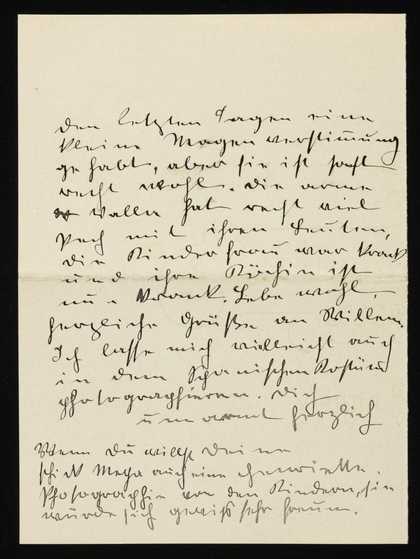 den letzten Tagen eine
kleine Magenverstimmung
gehabt, aber sie ist sonst
recht wohl. Die arme
Wally hat recht viel
Pech mit ihren Leuten,
die Kinderfrau war krank
und ihre Köchin ist
nun krank. Lebe wohl,
herzliche Grüße an Willem.
Ich lasse mich vielleicht auch
in dem Spanischen Kostüm
photographieren. Dich
umarmt herzlich
Wenn Du willst
schick auch eine
Photographie von den Kindern, sie
würde sich gewiß sehr freuen.